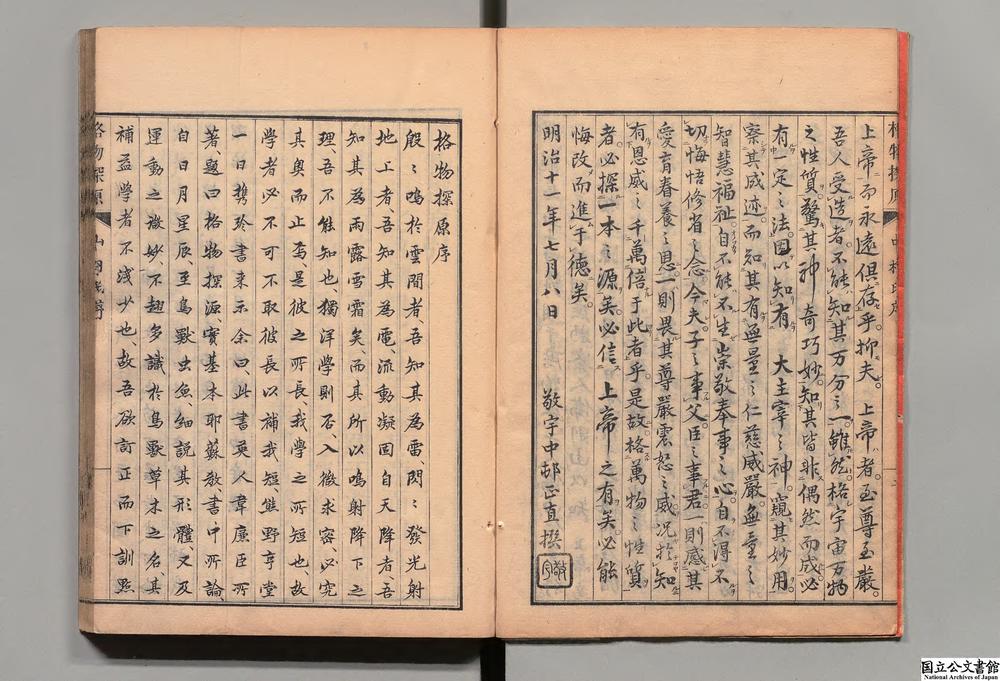 上帝而永遠倶存乎抑夫上帝者至尊至嚴
吾人受造者不能知其万分之一雖然格宇宙万物
之性質驚其神奇巧妙知其皆非偶然而成必
有一定之法因以知有大主宰之神窺其妙用
察其成迹而知其有無量之仁慈威嚴無量之
智慧福祉自不能不生崇敬奉事之心自不得不
切悔悟修省之念今夫子之事父臣之事君一則感其
愛育眷養之恩一則畏其尊嚴震怒之威況於知
有恩威之千萬倍于此者乎是故格萬物之性質
者必探一本之源矣必信上帝之有矣必能
悔改而進于德矣
明治十一年七月八日 敬宇中邨正直撰
敬宇
格物探原序
殷々鳴於雲間者吾知其為雷閃々發光射
地上者吾知其為電流動凝固自天降者吾
知其為雨露雪霜矣而其所以鳴射降下之
理吾不能知也獨洋學則否入微求密必究
其奥而止焉是彼之所長我學之所短也故
學者必不可不取彼長以補我短熊野亨堂
一日携於書来示余曰此書英人韋廉臣所
著題曰格物探源實基本耶蘇教書中所論
自日月星辰至鳥獸虫魚細説其形體又及
運動之微妙不趐多識於鳥獸草木之名其
補益學者不淺少也故吾欲訂正而下訓點
格物探原
国立公文書館
National Archives of Japan